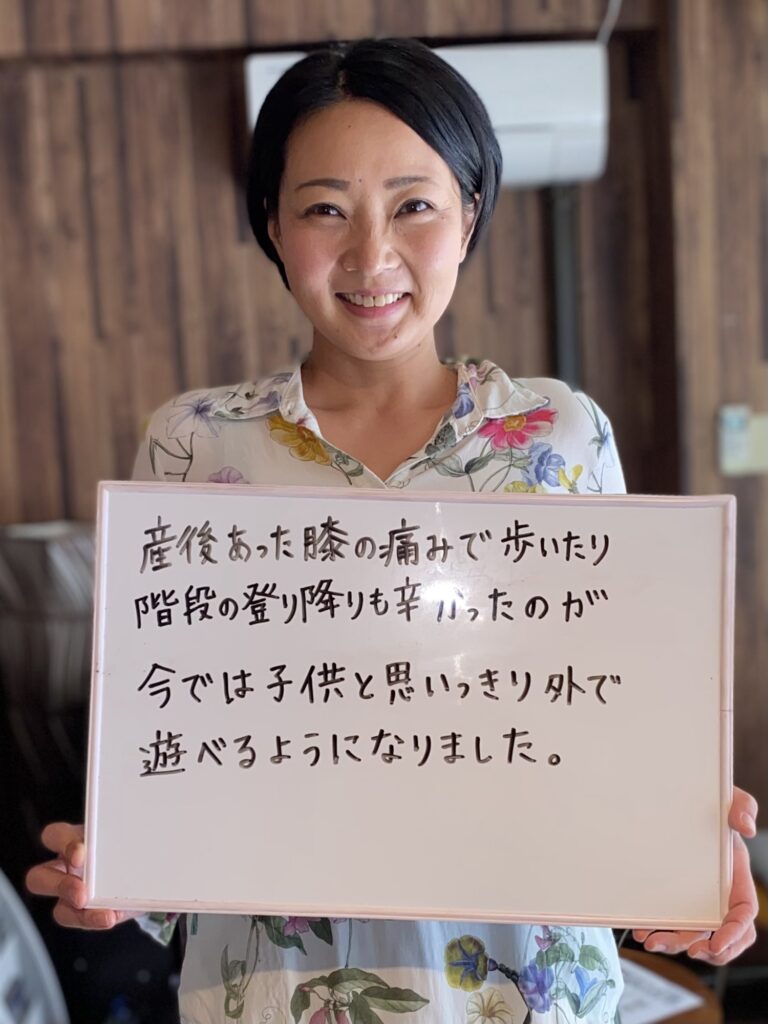 産後あった膝の痛みで歩いたり
階段の登り降りも辛かったのが
今では子供と思いっきり外で
遊べるようになりました。